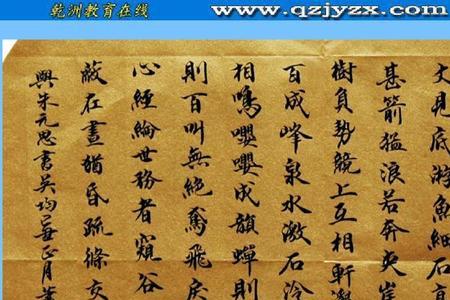 乾洲教育在线
www.qzjyzx.com
丈見底游魚細石直
甚箭猛浪若奔夾岸
樹負勢競上互相軒
百成峰泉水激石泠
相鳴嚶嚶成韻蟬則
則百叫無絕鳶飛戾
心經綸世務者窺谷
蔽在晝猶昏疏條交
與朱元思書吳均 正月